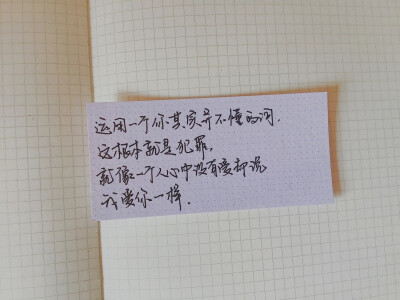 运用一个你其实并不懂的词.
这根本就是犯罪,
就像一个人心中没有爱却说
我爱你一样.